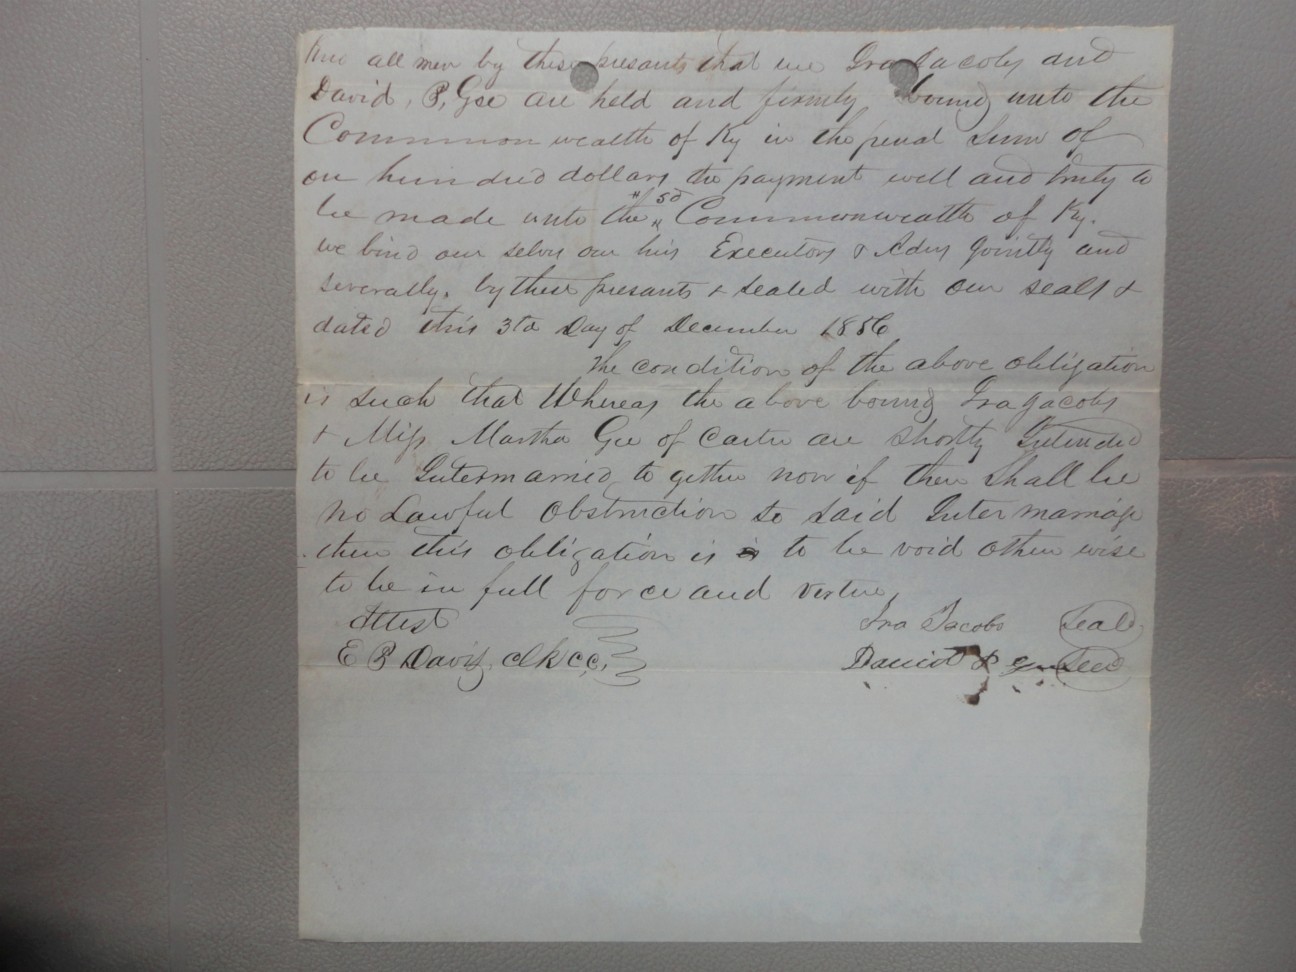 Know all men by these presants that we Ira Jacobs and
David, P, Gee are held and firmly bound unto the
Common wealth of Ky in the penal Sum of
on hundred dollars the payment well and truly to
be made unto the sd Commonwealth of Ky.
we bind our selvs our hirs Executors & Adms Jointly and
severally. by these presants & sealed with our seals &
dated this 3td Day of December 1856
The condition of the above obligation
is such that Whereas the above bound Ira Jacobs
& Miss Martha Gee of Carter are Shortly Intended
to be Intermarried to gether now if there Shall be
no Lawful Obstruction to said Inter marriage
then this obligation is is to be void other wise
to be in full force and vertue
Attest Ira Jacobs Seal
E P Davis, clk cc, David P Gee Seal